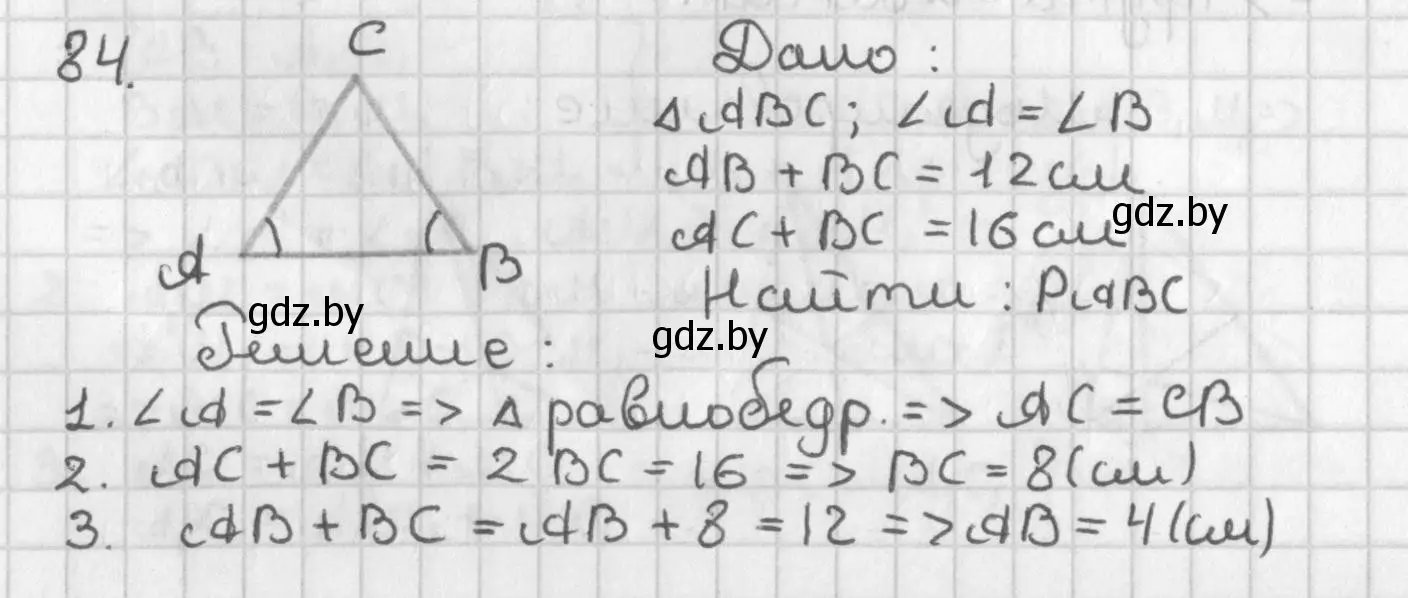 84.
C
A
B
Дано :
△ABC; ∠A = ∠B
AB + BC = 12 см
gdz.by
AC + BC = 16 см
Найти : PABC
gdz.by
gdz.by
Решение :
1. ∠A = ∠B => △ равнобедр. => AC = CB
2. AC + BC = 2 BC = 16 => BC = 8 (см)
3. AB + BC = AB + 8 = 12 => AB = 4 (см)